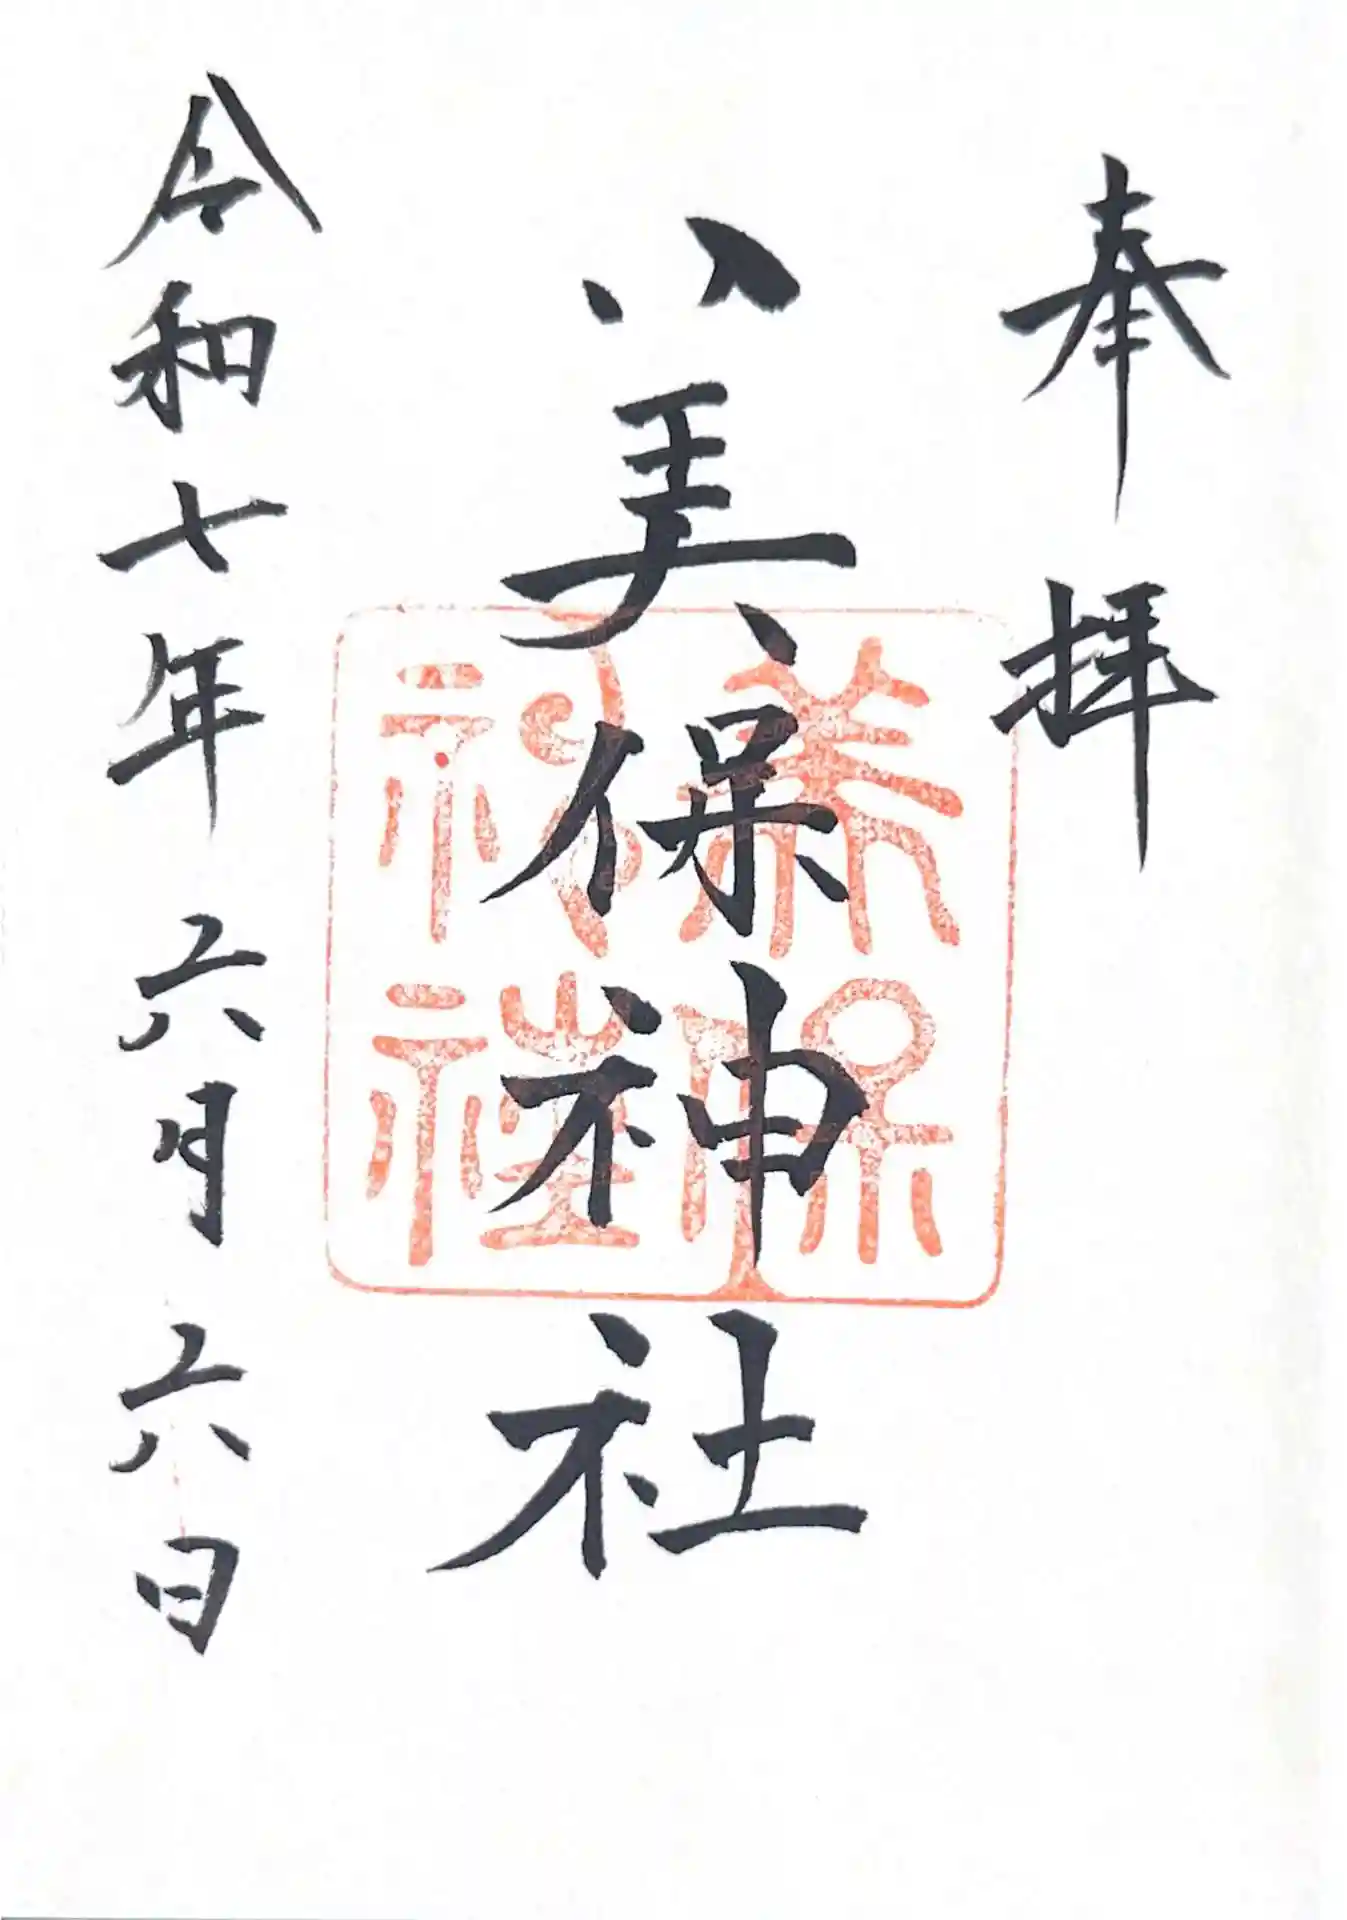 奉拝
美保神社
美保神社
令和七年六月六日